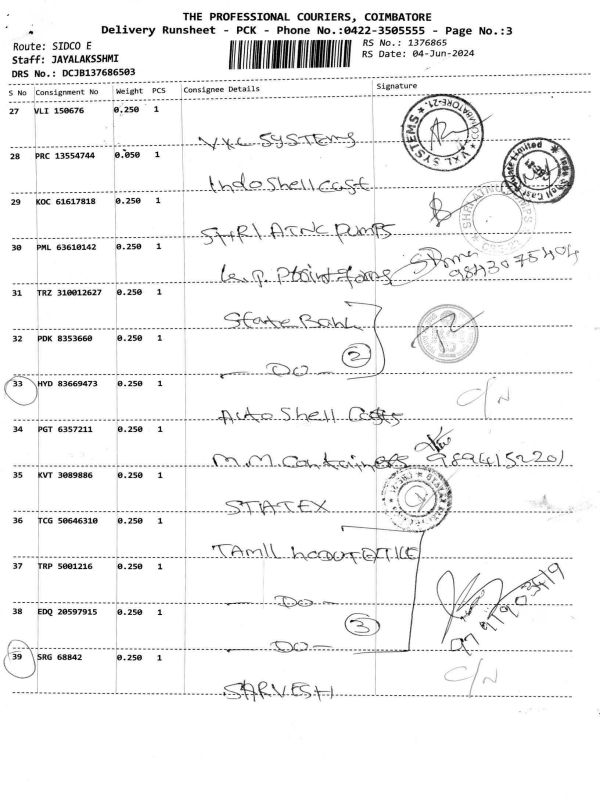 THE PROFESSIONAL COURIERS, COIMBATORE
Delivery Runsheet - PCK - Phone No.:0422-3505555 - Page No.:3
Route: SIDCO E
RS No.: 1376865
Staff: JAYALAKSSHMI
RS Date: 04-Jun-2024
DRS No.: DCJB137686503
S No Consignment No Weight PCS Consignee Details Signature
27 VLI 150676 0.250 1
VXL SYSTEMS
VXL SYSTEMS COIMBATORE-21
28 PRC 13554744 0.050 1
Indo Shell Cast
Indo Shell Cast Private Limited
29 KOC 61617818 0.250 1
SHRI ATNC PUMPS
30 PML 63610142 0.250 1
9843075404
31 TRZ 310012627 0.250 1
State Bank
32 PDK 8353660 0.250 1
— DO — 2
33 HYD 83669473 0.250 1
Auto Shell Casts
C/N
34 PGT 6357211 0.250 1
M.M. Containers 9894152201
35 KVT 3089886 0.250 1
STATEX
36 TCG 50646310 0.250 1
TAMIL
37 TRP 5001216 0.250 1
— DO —
38 EDQ 20597915 0.250 1
— DO — 3
39 SRG 68842 0.250 1
SARVESH
C/N